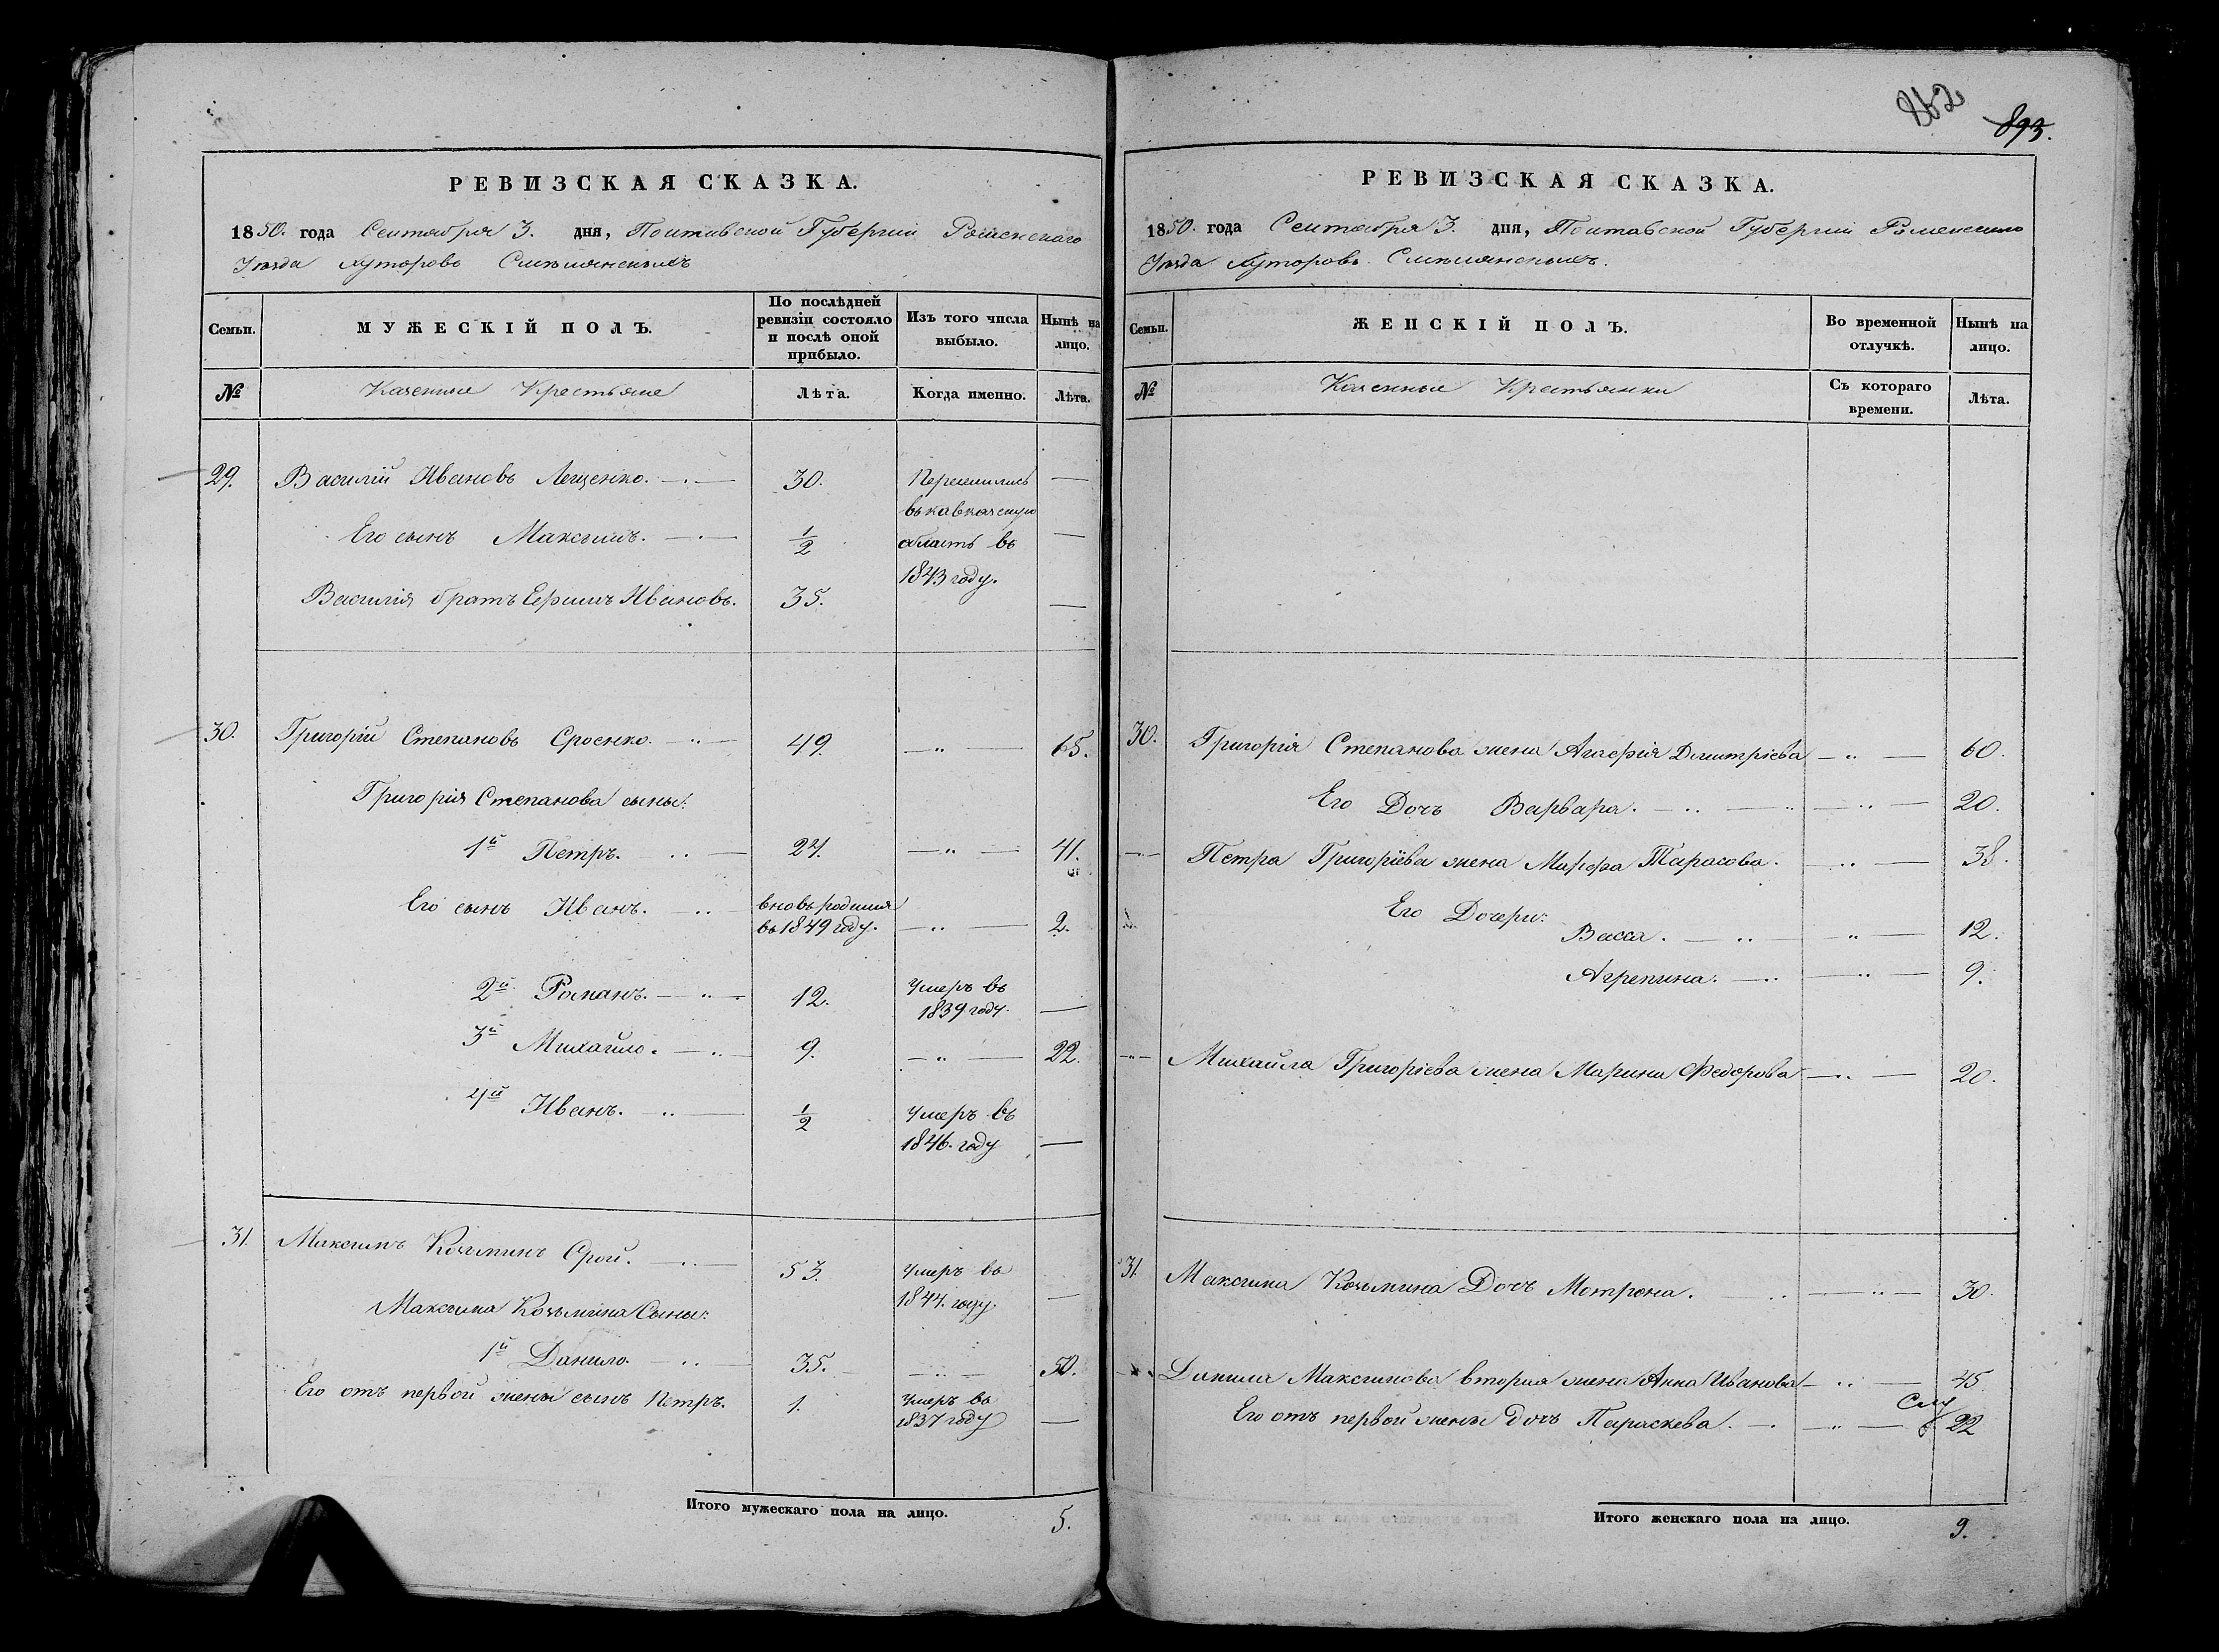 РЕВИЗСКАЯ СКАЗКА.
1850. года Сентября 3. дня, Полтавской Губерніи Роменскаго
Уѣзда Хуторовъ
Семьи.
МУЖЕСКІЙ ПОЛЪ.
По послѣдней
ревизіи состояло
и послѣ оной
прибыло.
Изъ того числа
выбыло.
Нынѣ на
лицо.
№
Казенные Крестьяне
Лѣта.
Когда именно.
Лѣта.
29. Василій Ивановъ Лещенко. 30. Переселились —
въ кавказскую
Его сынъ Максимъ. 1/2 область въ —
1843 году.
Василія братъ Ефимъ Ивановъ. 35. —
30. Григорій Степановъ Сроенко. 49. — „ — 65.
Григорія Степанова сыны:
1й Петръ. 27. — „ — 41.
Его сынъ Иванъ. вновь родился
въ 1849 году. — „ — 2.
2й Романъ. 12. Умеръ въ
1839 году. —
3й Михайло. 9. — „ — 22.
4й Иванъ. 1/2 Умеръ въ
1846. году —
31. Максимъ Козьминъ Срой. 53. Умеръ въ
1844. году. —
Максима Козьмина Сыны:
1й Данило. 35. — „ — 50.
Его отъ первой жены сынъ Петръ. 1. Умеръ въ
1837 году —
Итого мужескаго пола на лицо. 5.
862
893.
РЕВИЗСКАЯ СКАЗКА.
1850. года Сентября 3. дня, Полтавской Губерніи Роменскаго
Уѣзда Хуторовъ
Семьи.
ЖЕНСКІЙ ПОЛЪ.
Во временной
отлучкѣ.
Нынѣ на
лицо.
№
Казенные Крестьянки
Съ котораго
времени.
Лѣта.
30. Григорія Степанова жена Агафія Дмитріева — „ — 60.
Его Дочь Варвара. — „ — 20.
Петра Григорьева жена Марфа Тарасова. — „ — 38.
Его Дочери:
Васса. — „ — 12.
Агрепина. — „ — 9.
Михайла Григоріева жена Марина Федорова — „ — 20.
31. Максима Козьмина Дочь Мотрона. — „ — 30.
Данила Максимова вторая жена Анна Иванова — „ — 45
Его отъ первой жены дочь Параскева. — „ — 22
Итого женскаго пола на лицо. 9.